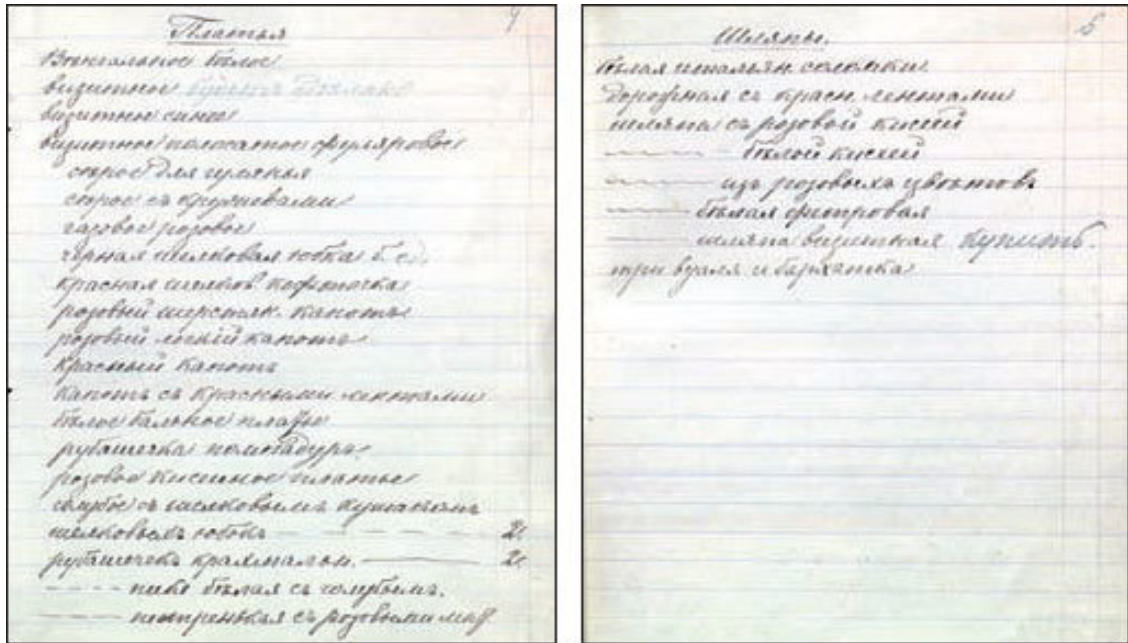 4
Платья
Вѣнчальное бѣлое
визитное
визитное синее
визитное полосатое фуляровое
сѣрое для гулянья
сѣрое съ кружевами
газовое розовое
чёрная шелковая юбка
красная шелков. кофточка
розовый шерстян. капотъ
розовый легкій капотъ
красный капотъ
капотъ съ красными лентами
бѣлое бальное платье
рубашечка помпадуръ
розовое кисейное платье
голубое съ шелковымъ кушакомъ
шелковыхъ юбокъ — — — — 2
рубашечекъ крахмальн. — — — 2
— — — пике бѣлая съ голубымъ.
— — — пестренькая съ розовыми
5
Шляпы.
бѣлая итальян. соломки
дорожная съ красн. лентами
шляпа съ розовой кисеей
— — — бѣлой кисеей
— — — изъ розовыхъ цвѣтовъ
— — — бѣлая фетровая
— — — шляпа визитная купить.
три вуаля и бархатка